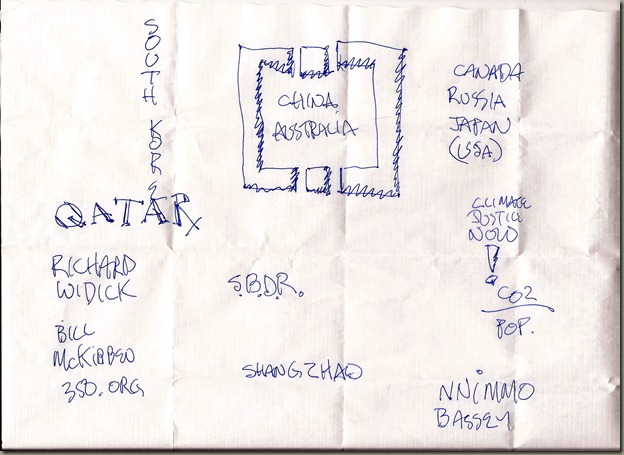 SOUTH KOREA
QATAR
CHINA
AUSTRALIA
CANADA
RUSSIA
JAPAN
(USA)
CLIMATE
JUSTICE
NOW
!
CO2
POP.
RICHARD
WIDICK
BILL
McKIBBEN
350.ORG
S.B.D.R.
SHANGZHAO
NNIMMO
BASSEY